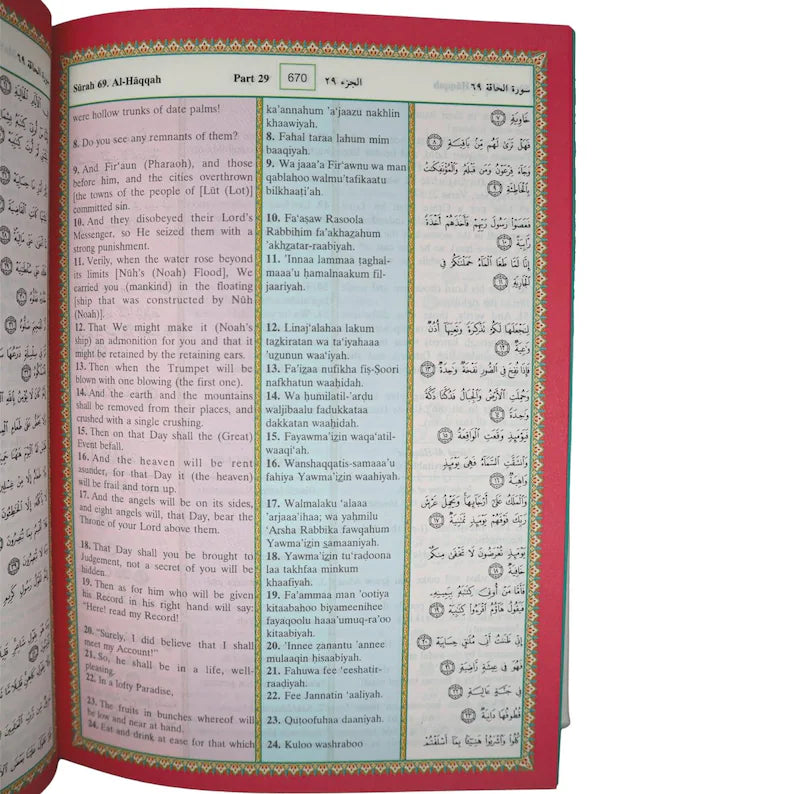 Sûrah 69. Al-Hâqqah
Part 29
670
الجزء ٢٩
سورة الحاقة ٦٩
were hollow trunks of date palms!
8. Do you see any remnants of them?
9. And Fir'aun (Pharaoh), and those
before him, and the cities overthrown
[the towns of the people of [Lût (Lot)]
committed sin.
10. And they disobeyed their Lord's
Messenger, so He seized them with a
strong punishment.
11. Verily, when the water rose beyond
its limits [Nûh's (Noah) Flood], We
carried you (mankind) in the floating
[ship that was constructed by Nûh
(Noah)].
12. That We might make it (Noah's
ship) an admonition for you and that it
might be retained by the retaining ears.
13. Then when the Trumpet will be
blown with one blowing (the first one).
14. And the earth and the mountains
shall be removed from their places, and
crushed with a single crushing.
15. Then on that Day shall the (Great)
Event befall.
16. And the heaven will be rent
asunder, for that Day it (the heaven)
will be frail and torn up.
17. And the angels will be on its sides,
and eight angels will, that Day, bear the
Throne of your Lord above them.
18. That Day shall you be brought to
Judgement, not a secret of you will be
hidden.
19. Then as for him who will be given
his Record in his right hand will say:
"Here! read my Record!
20. "Surely, I did believe that I shall
meet my Account!"
21. So, he shall be in a life, well-
pleasing.
22. In a lofty Paradise,
23. The fruits in bunches whereof will
be low and near at hand.
24. Eat and drink at ease for that which
ka'annahum 'a'jaazu nakhlin
khaawiyah.
8. Fahal taraa lahum mim
baaqiyah.
9. Wa jaaa'a Fir'awnu wa man
qablahoo walmu'tafikaatu
bilkhaaṭi'ah.
10. Fa'aṣaw Rasoola
Rabbihim fa'akhazahum
'akhzatar-raabiyah.
11. 'Innaa lammaa ṭaghal-
maaa'u ḥamalnaakum fil-
jaariyah.
12. Linaj'alahaa lakum
tazkiratan wa ta'iyahaaa
'uzunun waa'iyah.
13. Fa'izaa nufikha fiṣ-Ṣoori
nafkhatun waaḥidah.
14. Wa ḥumilatil-'arḍu
waljibaalu fadukkataa
dakkatan waaḥidah.
15. Fayawma'izin waqa'atil-
waaqi'ah.
16. Wanshaqqatis-samaaa'u
fahiya Yawma'izin waahiyah.
17. Walmalaku 'alaaa
'arjaaa'ihaa; wa yaḥmilu
'Arsha Rabbika fawqahum
Yawma'izin samaaniyah.
18. Yawma'izin tu'raḍoona
laa takhfaa minkum
khaafiyah.
19. Fa'ammaa man 'ootiya
kitaabahoo biyameenihee
fayaqoolu haaa'umuq-ra'oo
kitaabiyah.
20. 'Innee ẓanantu 'annee
mulaaqin ḥisaabiyah.
21. Fahuwa fee 'eeshatir-
raaḍiyah.
22. Fee Jannatin 'aaliyah.
23. Quṭoofuhaa daaniyah.
24. Kuloo washraboo
خَاوِيَةٍ ٧
فَهَلْ تَرَىٰ لَهُم مِّنۢ بَاقِيَةٍ ٨
وَجَاءَ فِرْعَوْنُ وَمَن قَبْلَهُ وَالْمُؤْتَفِكَاتُ
بِالْخَاطِئَةِ ٩
فَعَصَوْا رَسُولَ رَبِّهِمْ فَأَخَذَهُمْ أَخْذَةً
رَّابِيَةً ١٠
إِنَّا لَمَّا طَغَا الْمَاءُ حَمَلْنَاكُمْ فِي
الْجَارِيَةِ ١١
لِنَجْعَلَهَا لَكُمْ تَذْكِرَةً وَتَعِيَهَا أُذُنٌ
وَاعِيَةٌ ١٢
فَإِذَا نُفِخَ فِي الصُّورِ نَفْخَةٌ وَاحِدَةٌ ١٣
وَحُمِلَتِ الْأَرْضُ وَالْجِبَالُ فَدُكَّتَا دَكَّةً
وَاحِدَةً ١٤
فَيَوْمَئِذٍ وَقَعَتِ الْوَاقِعَةُ ١٥
وَانشَقَّتِ السَّمَاءُ فَهِيَ يَوْمَئِذٍ
وَاهِيَةٌ ١٦
وَالْمَلَكُ عَلَىٰ أَرْجَائِهَا وَيَحْمِلُ عَرْشَ
رَبِّكَ فَوْقَهُمْ يَوْمَئِذٍ ثَمَانِيَةٌ ١٧
يَوْمَئِذٍ تُعْرَضُونَ لَا تَخْفَىٰ مِنكُمْ
خَافِيَةٌ ١٨
فَأَمَّا مَنْ أُوتِيَ كِتَابَهُ بِيَمِينِهِ
فَيَقُولُ هَاؤُمُ اقْرَءُوا كِتَابِيَهْ ١٩
إِنِّي ظَنَنتُ أَنِّي مُلَاقٍ حِسَابِيَهْ ٢٠
فَهُوَ فِي عِيشَةٍ رَّاضِيَةٍ ٢١
فِي جَنَّةٍ عَالِيَةٍ ٢٢
قُطُوفُهَا دَانِيَةٌ ٢٣
كُلُوا وَاشْرَبُوا هَنِيئًا بِمَا أَسْلَفْتُمْ